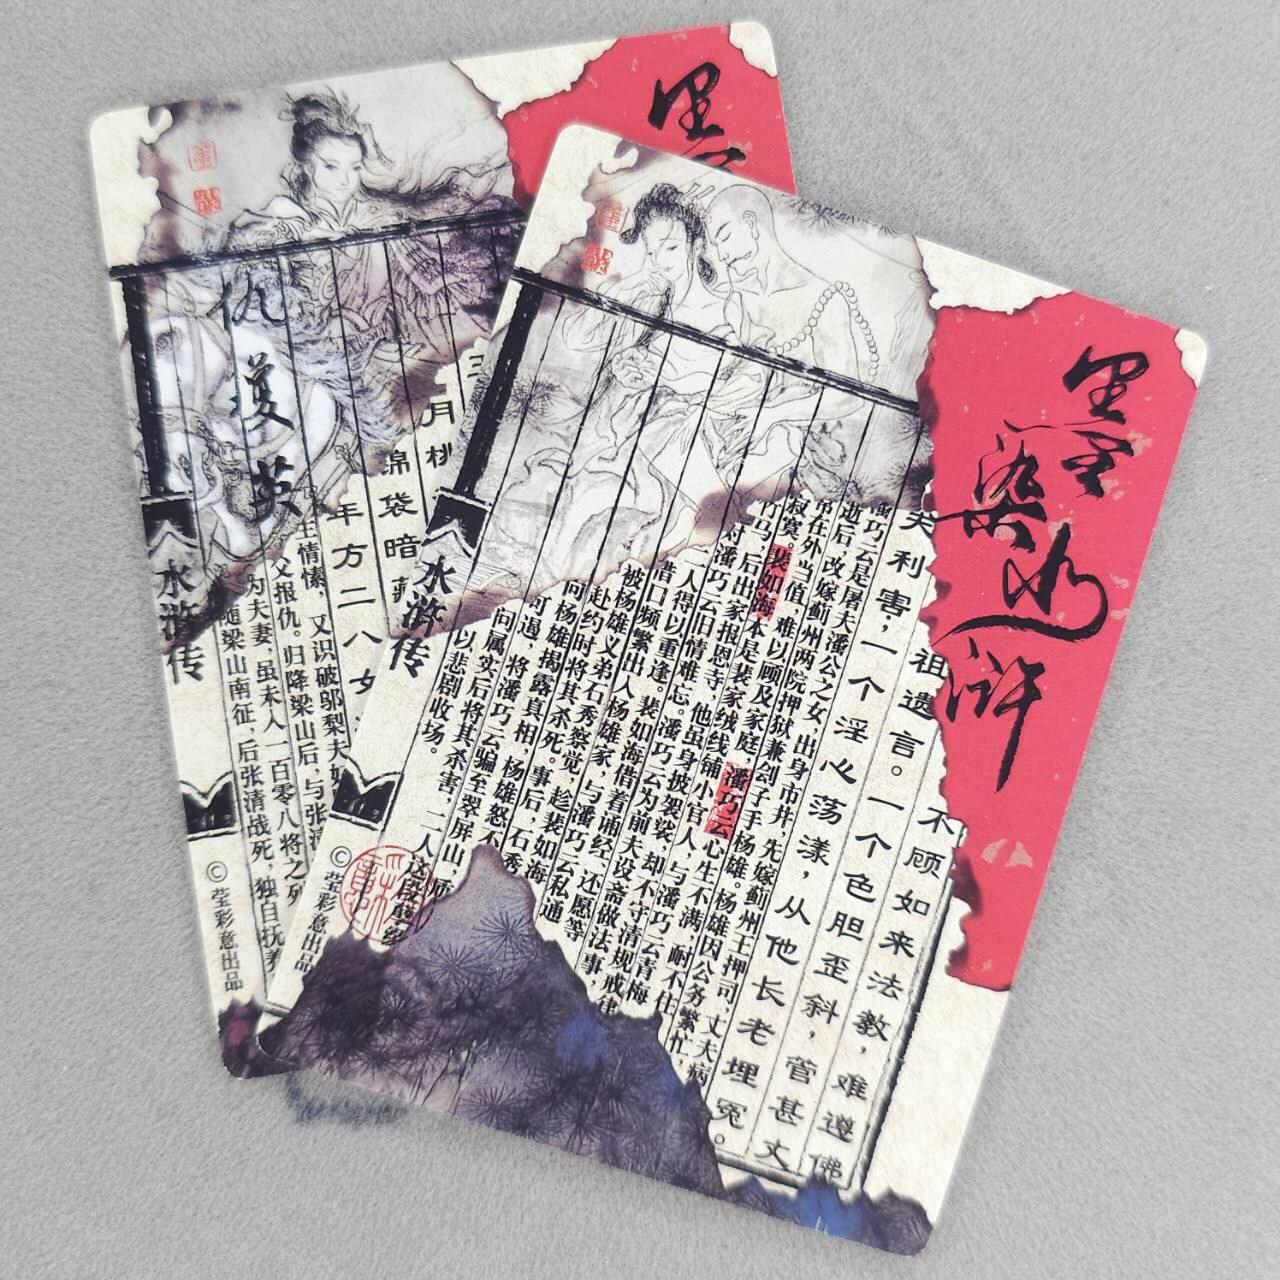 墨染水浒
不顾如来法教，难遵佛
祖遗言。一个色胆歪斜，管甚丈
夫利害，一个淫心荡漾，从他长老埋冤。
潘巧云是屠夫潘公之女，出身市井，先嫁蓟州王押司，丈夫病
逝后，改嫁蓟州两院押狱兼刽子手杨雄。杨雄因公务繁忙，
常在外当值，难以顾及家庭，潘巧云心生不满，耐不住
寂寞。裴如海本是裴家绒线铺小官人，与潘巧云青梅
竹马，后出家报恩寺，他虽身披袈裟，却不守清规戒律
对潘巧云旧情难忘。潘巧云为前夫设斋做法事，
二人得以重逢。裴如海借着诵经、还愿等
借口频繁出入杨雄家，与潘巧云私通
被杨雄义弟石秀察觉，趁裴如海
赴约时将其杀死。事后，石秀
向杨雄揭露真相，杨雄怒不
可遏，将潘巧云骗至翠屏山，质
问属实后将其杀害，二人这段孽缘
以悲剧收场。
水浒传
©莹彩意出品
墨
月桃
锦袋暗藏
年方二八女
生情愫，又识破邬梨夫妇
父报仇。归降梁山后，与张清
为夫妻，虽未入一百零八将之列
随梁山南征，后张清战死，独自抚养
仇瓊英
水浒传
©莹彩意出品